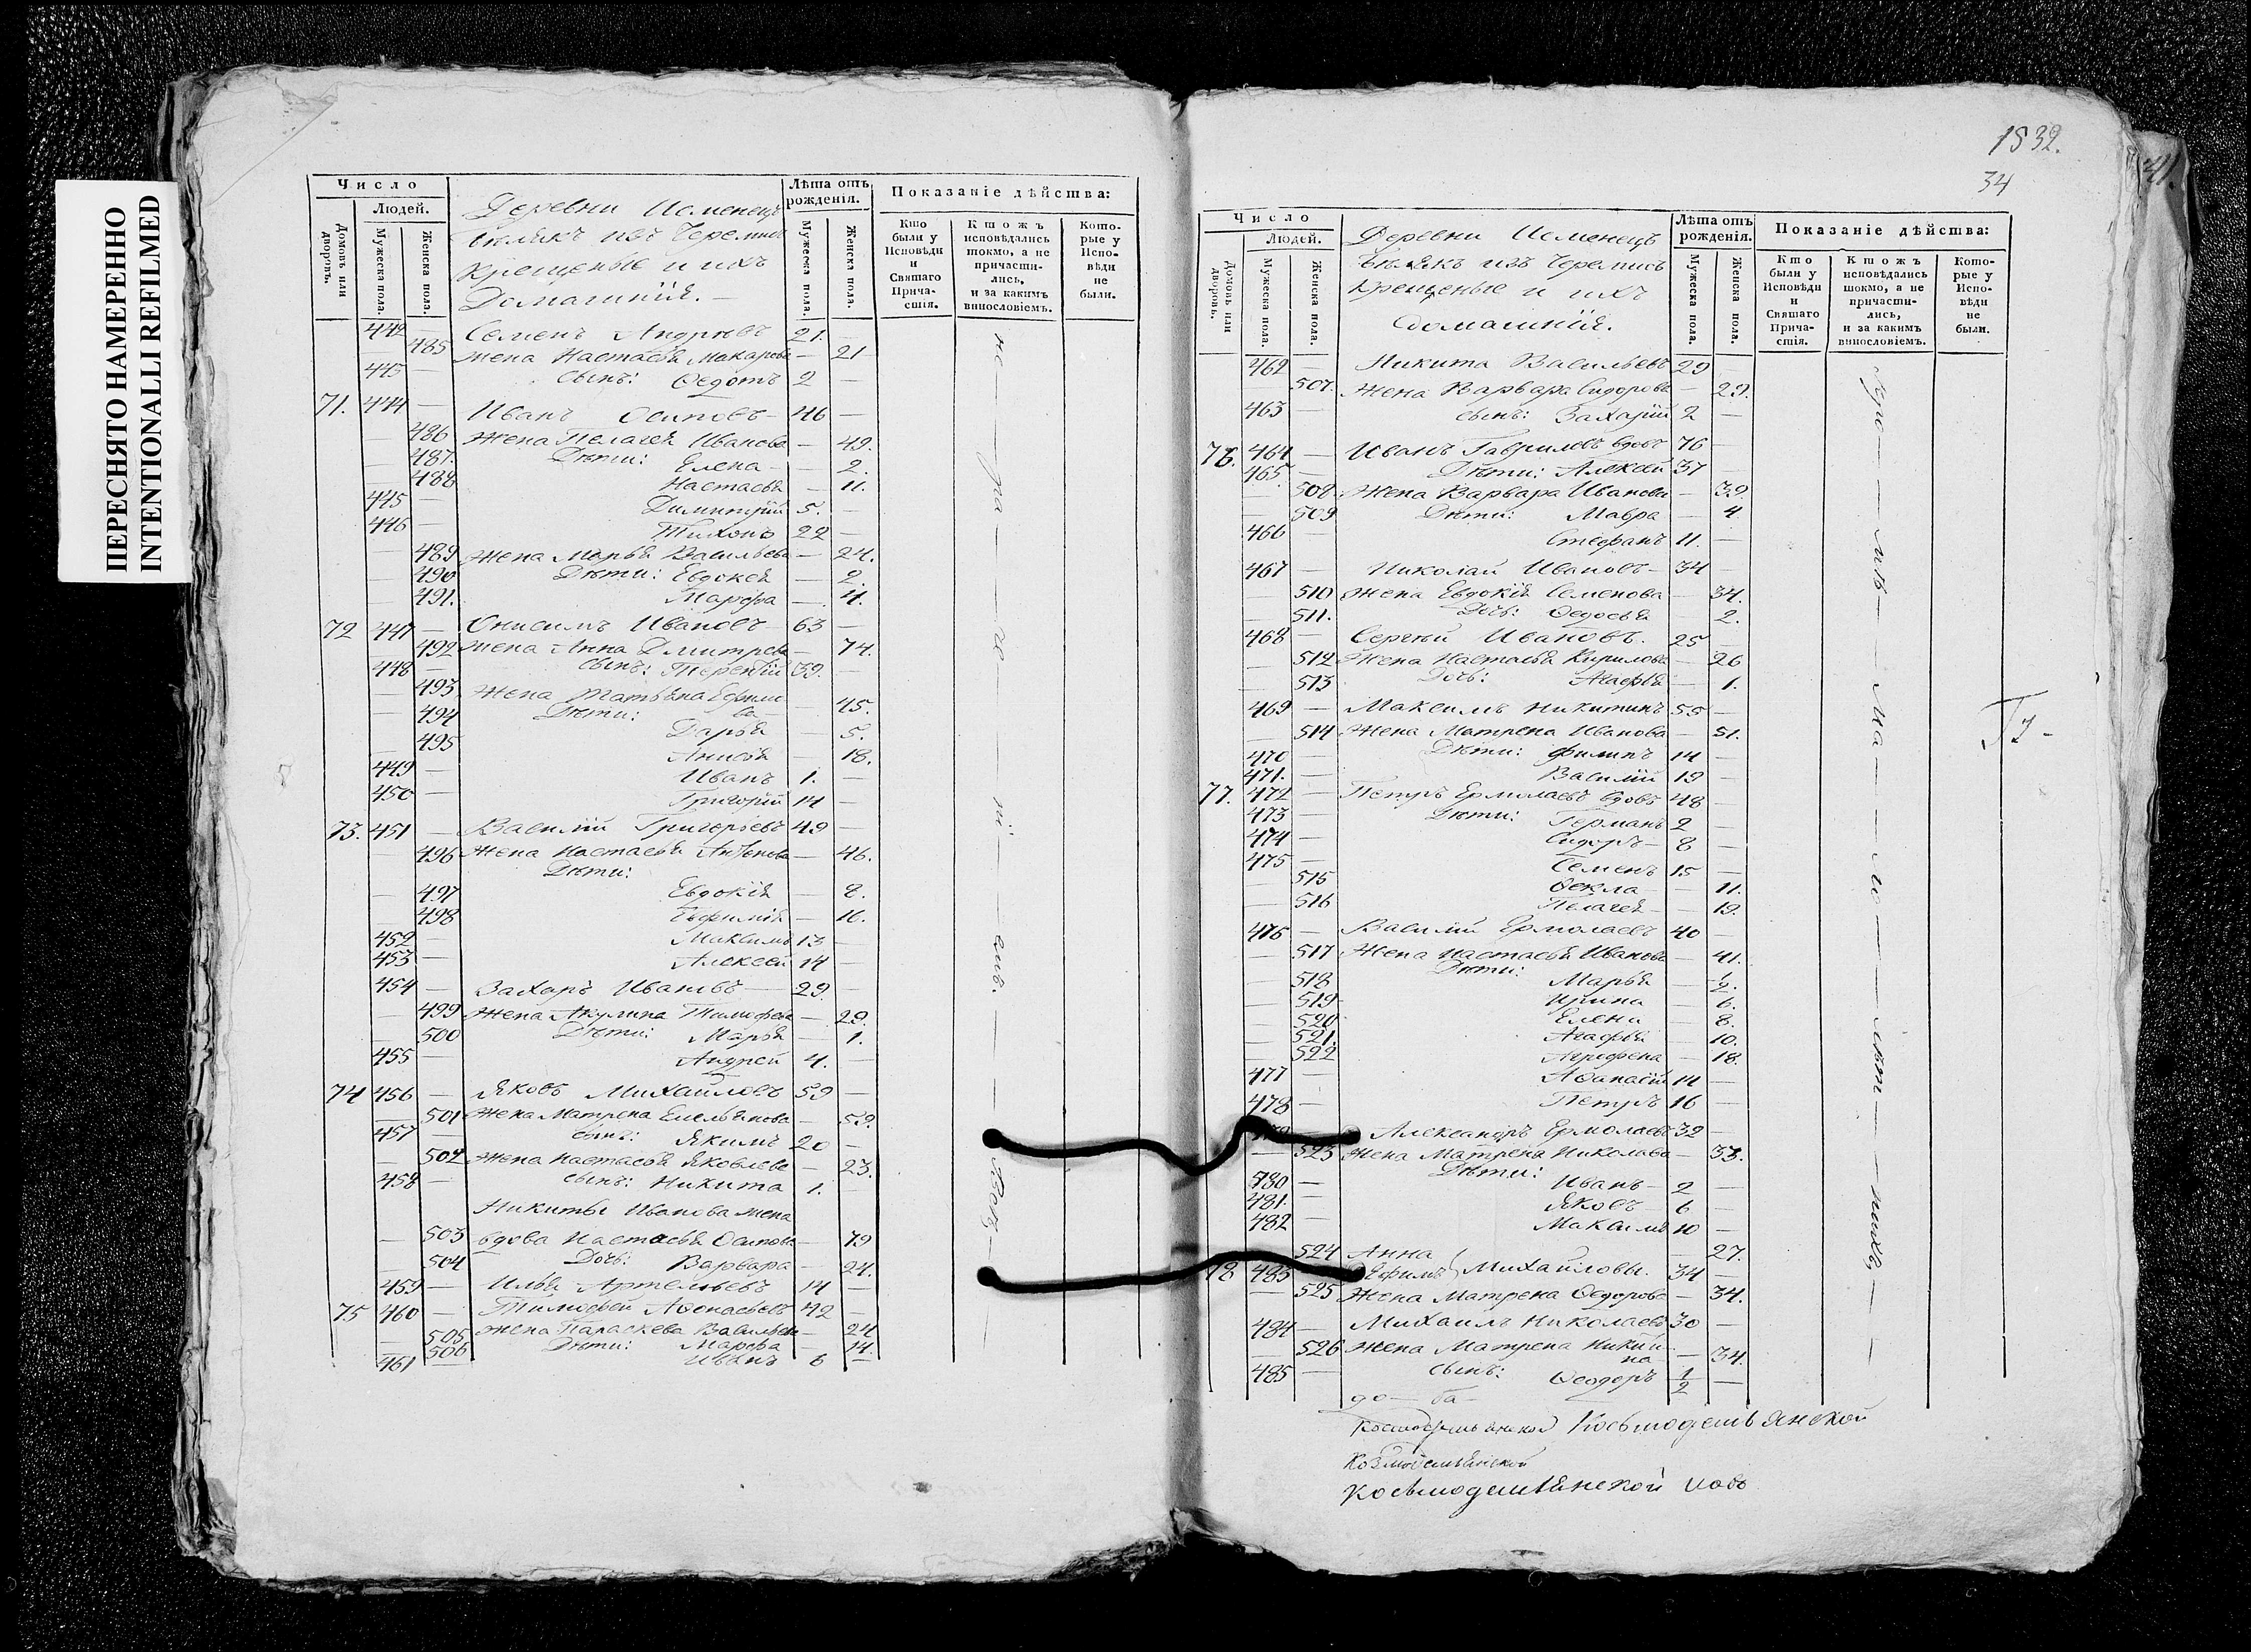 ПЕРЕСНЯТО НАМЕРЕННО
INTENTIONALLI REFILMED
Число
Людей.
Домовъ или дворовъ.
Мужеска пола.
Женска пола.
Деревни Исменецъ
изъ Черемисъ
крещеные и ихъ
Домашнія.
Лѣта отъ рожденія.
Мужеска пола.
Женска пола.
Показаніе дѣйства:
Кто были у Исповѣди и Святаго Причастія.
Ктожъ исповѣдались токмо, а не причастились, и за какимъ винословіемъ.
Которые у Исповѣди не были.
442 — Семенъ Андреевъ 21. —
— 485 жена Настасья Макарова — 21
443 — сынъ: Ѳедотъ 2 —
71. 444 — Иванъ Осиповъ 46 —
— 486 жена Пелагея Иванова — 49.
— 487. Дѣти: Елена — 2.
— 488 Настасья — 11.
445 — Димитрій 5. —
446 — Тихонъ 22 —
— 489 жена Марья Васильева — 24.
— 490 Дѣти: Евдокея — 2.
— 491. Марфа — 4.
72 447 — Онисимъ Ивановъ 63 —
— 492 жена Анна Дмитрева — 74.
448 — сынъ: Терентій 39. —
— 493 жена Татьяна Ефимова — 45.
— 494 Дѣти: Дарья — 5.
— 495 Анисья — 18.
449 — Иванъ 1. —
450 — Григорій 14 —
73. 451 — Василій Григорьевъ 49 —
— 496 жена Настасья Антонова — 46.
Дѣти:
— 497 Евдокія — 8.
— 498 Евфимія — 16.
452 — Максимъ 13 —
453 — Алексей 14 —
454 — Захаръ Ивановъ 29. —
— 499 жена Акулина Тимофеева — 29.
— 500 Дѣти: Марья — 1.
455 — Андрей 4. —
74 456 — Яковъ Михайловъ 59 —
— 501 жена Матрена Емельянова — 59.
457 — сынъ: Якимъ 20 —
— 502 жена Настасья Яковлева — 23.
458 — сынъ: Никита 1. —
Никиты Иванова жена
— 503 вдова Настасья Осипова — 79
— 504 Дочь: Варвара — 24.
459 — Илья Артемьевъ 14 —
75 460 — Тимофей Аѳонасьевъ 42 —
— 505 жена Параскева Васильева — 24
— 506 Дѣти: Марфа — 14.
461 — Иванъ 6 —
1832.
34
41.
Число
Людей.
Домовъ или дворовъ.
Мужеска пола.
Женска пола.
Деревни Исменецъ
изъ Черемисъ
крещеные и ихъ
домашнія.
Лѣта отъ рожденія.
Мужеска пола.
Женска пола.
Показаніе дѣйства:
Кто были у Исповѣди и Святаго Причастія.
Ктожъ исповѣдались токмо, а не причастились, и за какимъ винословіемъ.
Которые у Исповѣди не были.
462 — Никита Васильевъ 29 —
— 507. жена Варвара Сидорова — 29.
463 — сынъ: Захарій 2 —
76. 464 — Иванъ Гавриловъ вдовъ 76 —
465 — Дѣти: Алексей 37 —
— 508. жена Варвара Иванова — 39.
— 509 Дѣти: Мавра — 4
466 — Стефанъ 11. —
467 — Николай Ивановъ 34 —
— 510 жена Евдокія Семенова — 34.
— 511. Дочь: Ѳедосья — 2.
468 — Сергей Ивановъ. 25 —
— 512 жена Настасья Кирилова — 26
— 513 Дочь: Агафья — 1.
469 — Максимъ Никитинъ 55 —
— 514 жена Матрена Иванова — 51.
470 — Дѣти: Филипъ 14 —
471. — Василій 19 —
77. 472 — Петръ Ермолаевъ вдовъ 48 —
473 — Дѣти: Германъ 2 —
474 — Сидоръ 8 —
475 — Семенъ 15 —
— 515 Ѳекла — 11.
— 516 Пелагея — 19.
476 — Василій Ермолаевъ 40 —
— 517 жена Настасья Иванова — 41.
Дѣти:
— 518 Марья — 1/2.
— 519 Ирина — 6.
— 520 Елена — 8.
— 521. Агафья — 10.
— 522 Агрефена — 18.
477 — Аѳанасій 14 —
478 — Петръ 16 —
Александръ Ермолаевъ 32 —
— 523 жена Матрена Николаева — 33.
Дѣти:
480 — Иванъ 2 —
481. — Яковъ 6 —
482 — Максимъ 10 —
524 Анна — 27.
78 483 Ефимъ } Михайловы. 34 —
— 525 жена Матрена Ѳедорова — 34.
484 — Михаилъ Николаевъ 30 —
— 526 жена Матрена Никитина — 34.
485 — сынъ: Ѳеодоръ 1/2 —
Космодемьянской Косьмодемьянской
Козмодемьянской
Косьмодемьянской